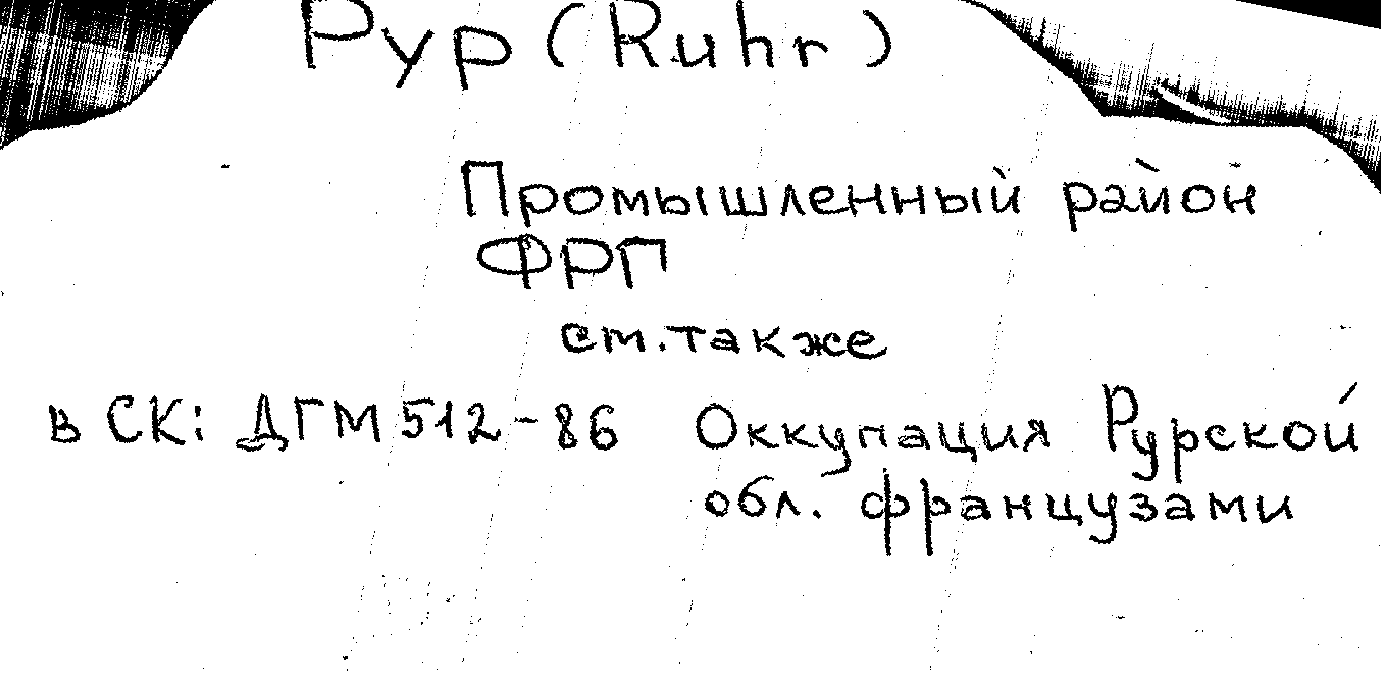 Рур (Ruhr)
Промышленный район
ФРГ
см. также
в СК: ДГМ 512-86 Оккупация Рурской
обл. французами